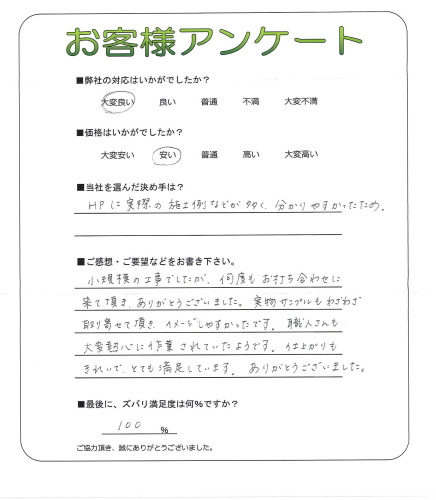 お客様アンケート
■弊社の対応はいかがでしたか？
大変良い 良い 普通 不満 大変不満
■価格はいかがでしたか？
大変安い 安い 普通 高い 大変高い
■当社を選んだ決め手は？
HPに実際の施工例などが多く、分かりやすかったため。
■ご感想・ご要望などをお書き下さい。
小規模の工事でしたが、何度もお打ち合わせに
来て頂き、ありがとうございました。実物サンプルもわざわざ
取り寄せて頂き、イメージしやすかったです。職人さんも
大変熱心に作業されていたようです。仕上がりも
きれいで、とても満足しています。ありがとうございました。
■最後に、ズバリ満足度は何%ですか？
100 %
ご協力頂き、誠にありがとうございました。